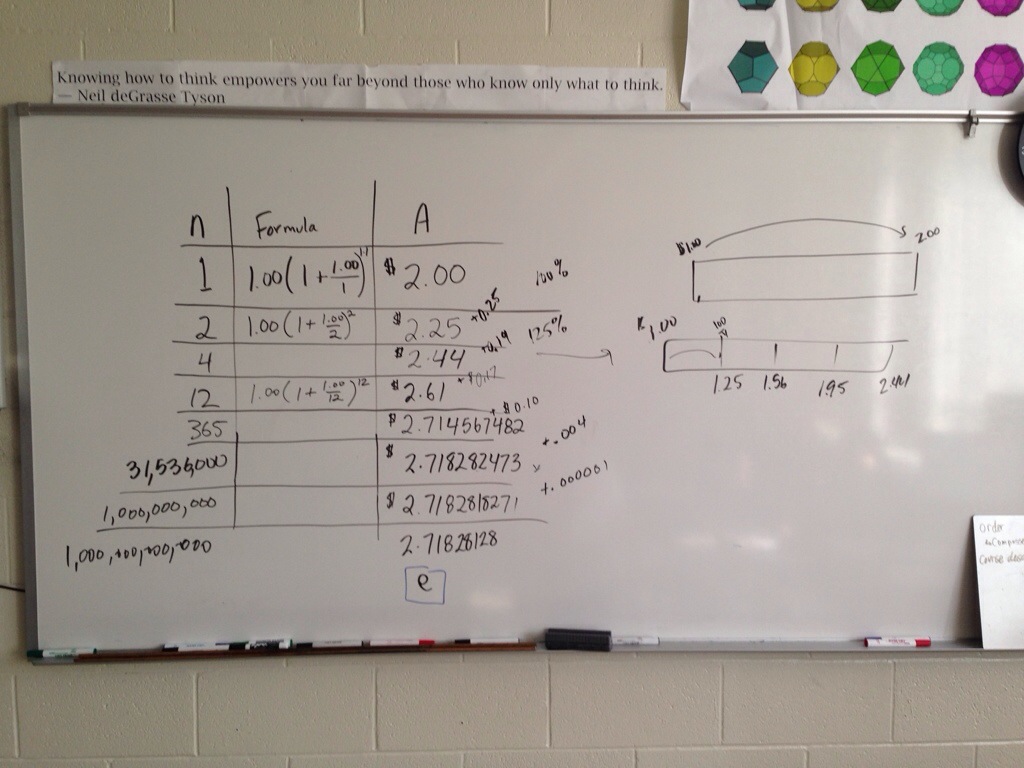 Knowing how to think empowers you far beyond those who know only what to think.
— Neil deGrasse Tyson
n Formula A
1 1.00(1+1.00/1)^1 $2.00 100%
2 1.00(1+1.00/2)^2 $2.25 +0.25 125%
4 $2.44 +0.19
12 1.00(1+1.00/12)^12 $2.61 +$0.17
365 $2.714567482 +$0.10
31,536,000 $2.718282473 +.004
1,000,000,000 $2.7182818271 +.000001
1,000,000,000,000 2.71828128
e
$1.00 2.00
1.00 .100
1.25 1.56 1.95 2.441
order
course